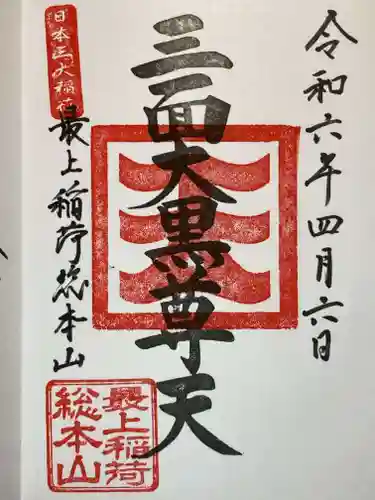 令和六年四月六日
三面大黒尊天
日本三大稲荷
最上稲荷総本山
最上稲荷
総本山